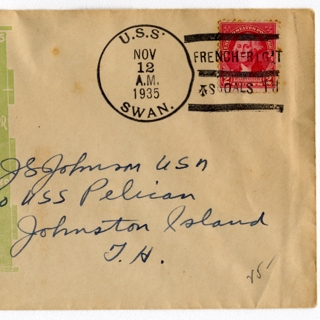 U.S.S.
NOV
12
A.M.
1935
SWAN.
FRENCH FRIGAT
SHOALS TH
JS Johnson USN
USS Pelican
Johnston Island
T.H.
25